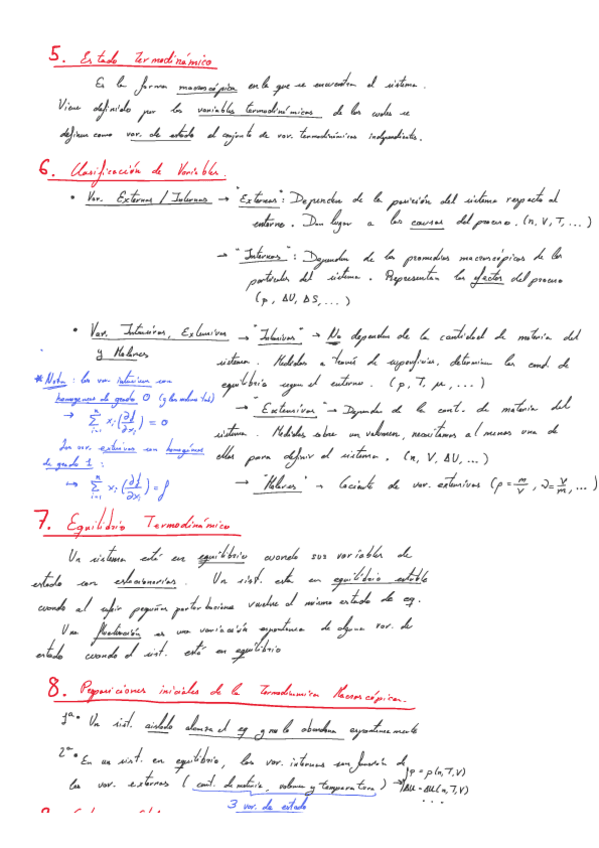 5. Estado Termodinámico
Es la forma macroscópica en la que se encuentra el sistema.
Viene definido por las variables termodinámicas de las cuales se
definen como var. de estado el conjunto de var. termodinámicas independientes.
6. Clasificación de Variables.
• Var. Externas / Internas → "Externas": Dependen de la posición del sistema respecto al
entorno. Dan lugar a las causas del proceso. (n, V, T, ...)
→ "Internas": Dependen de los promedios macroscópicos de las
partículas del sistema. Representan los efectos del proceso
(p, ΔU, ΔS, ...)
• Var. Intensivas, Extensivas → "Intensivas" → No dependen de la cantidad de materia del
y Molares
sistema. Medidas a través de superficies, determinan las cond. de
equilibrio según el entorno. (p, T, μ, ...)
→ "Extensivas" → Dependen de la cant. de materia del
sistema. Medidas sobre un volumen, necesitamos al menos una de
ellas para definir el sistema. (n, V, ΔU, ...)
→ "Molares" → Cociente de var. extensivas (ρ = m/V, v = V/m, ...)
* Nota: las var. intensivas son
homogéneas de grado 0 (y las molares tb)
→ Σ i=1 n xi (∂f/∂xi) = 0
Las var. extensivas son homogéneas
de grado 1:
→ Σ i=1 n xi (∂f/∂xi) = f
7. Equilibrio Termodinámico
Un sistema está en equilibrio cuando sus variables de
estado son estacionarias. Un sist. está en equilibrio estable
cuando al sufrir pequeñas perturbaciones vuelve al mismo estado de eq.
Una fluctuación es una variación espontánea de alguna var. de
estado cuando el sist. está en equilibrio
8. Proposiciones iniciales de la Termodinámica Macroscópica.
1ª • Un sist. aislado alcanza el eq y no lo abandona espontáneamente
2ª • En un sist. en equilibrio, las var. internas son función de
las var. externas (cant. de materia, volumen y temperatura) → p = p(n, T, V)
ΔU = ΔU(n, T, V)
...
3 var. de estado